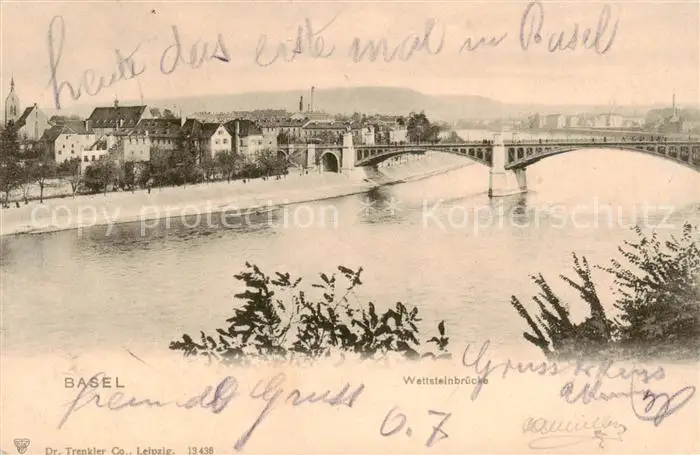 heute das erste mal in Basel
copy protection Kopierschutz
BASEL
Wettsteinbrücke
Gruss
freundl Gruss
O. 7
Dr. Trenkler Co., Leipzig. 13438